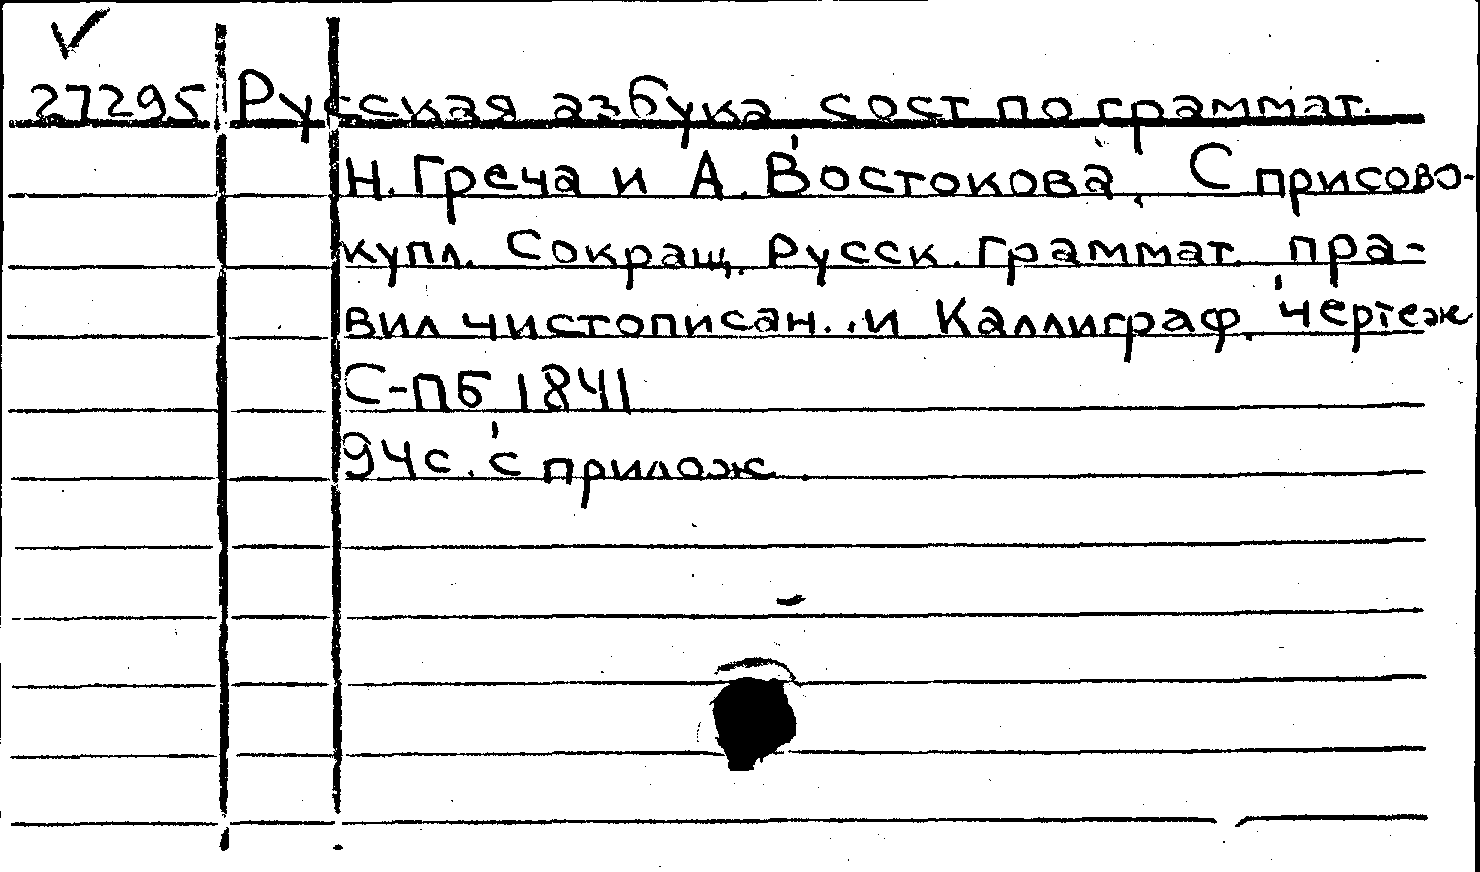 27295 Русская азбука сост по граммат.
Н. Греча и А. Востокова. С присово-
купл. Сокращ. Русск. граммат. пра-
вил чистописан. и Каллиграф. чертеж
С-ПБ 1841
94 с. с прилож.